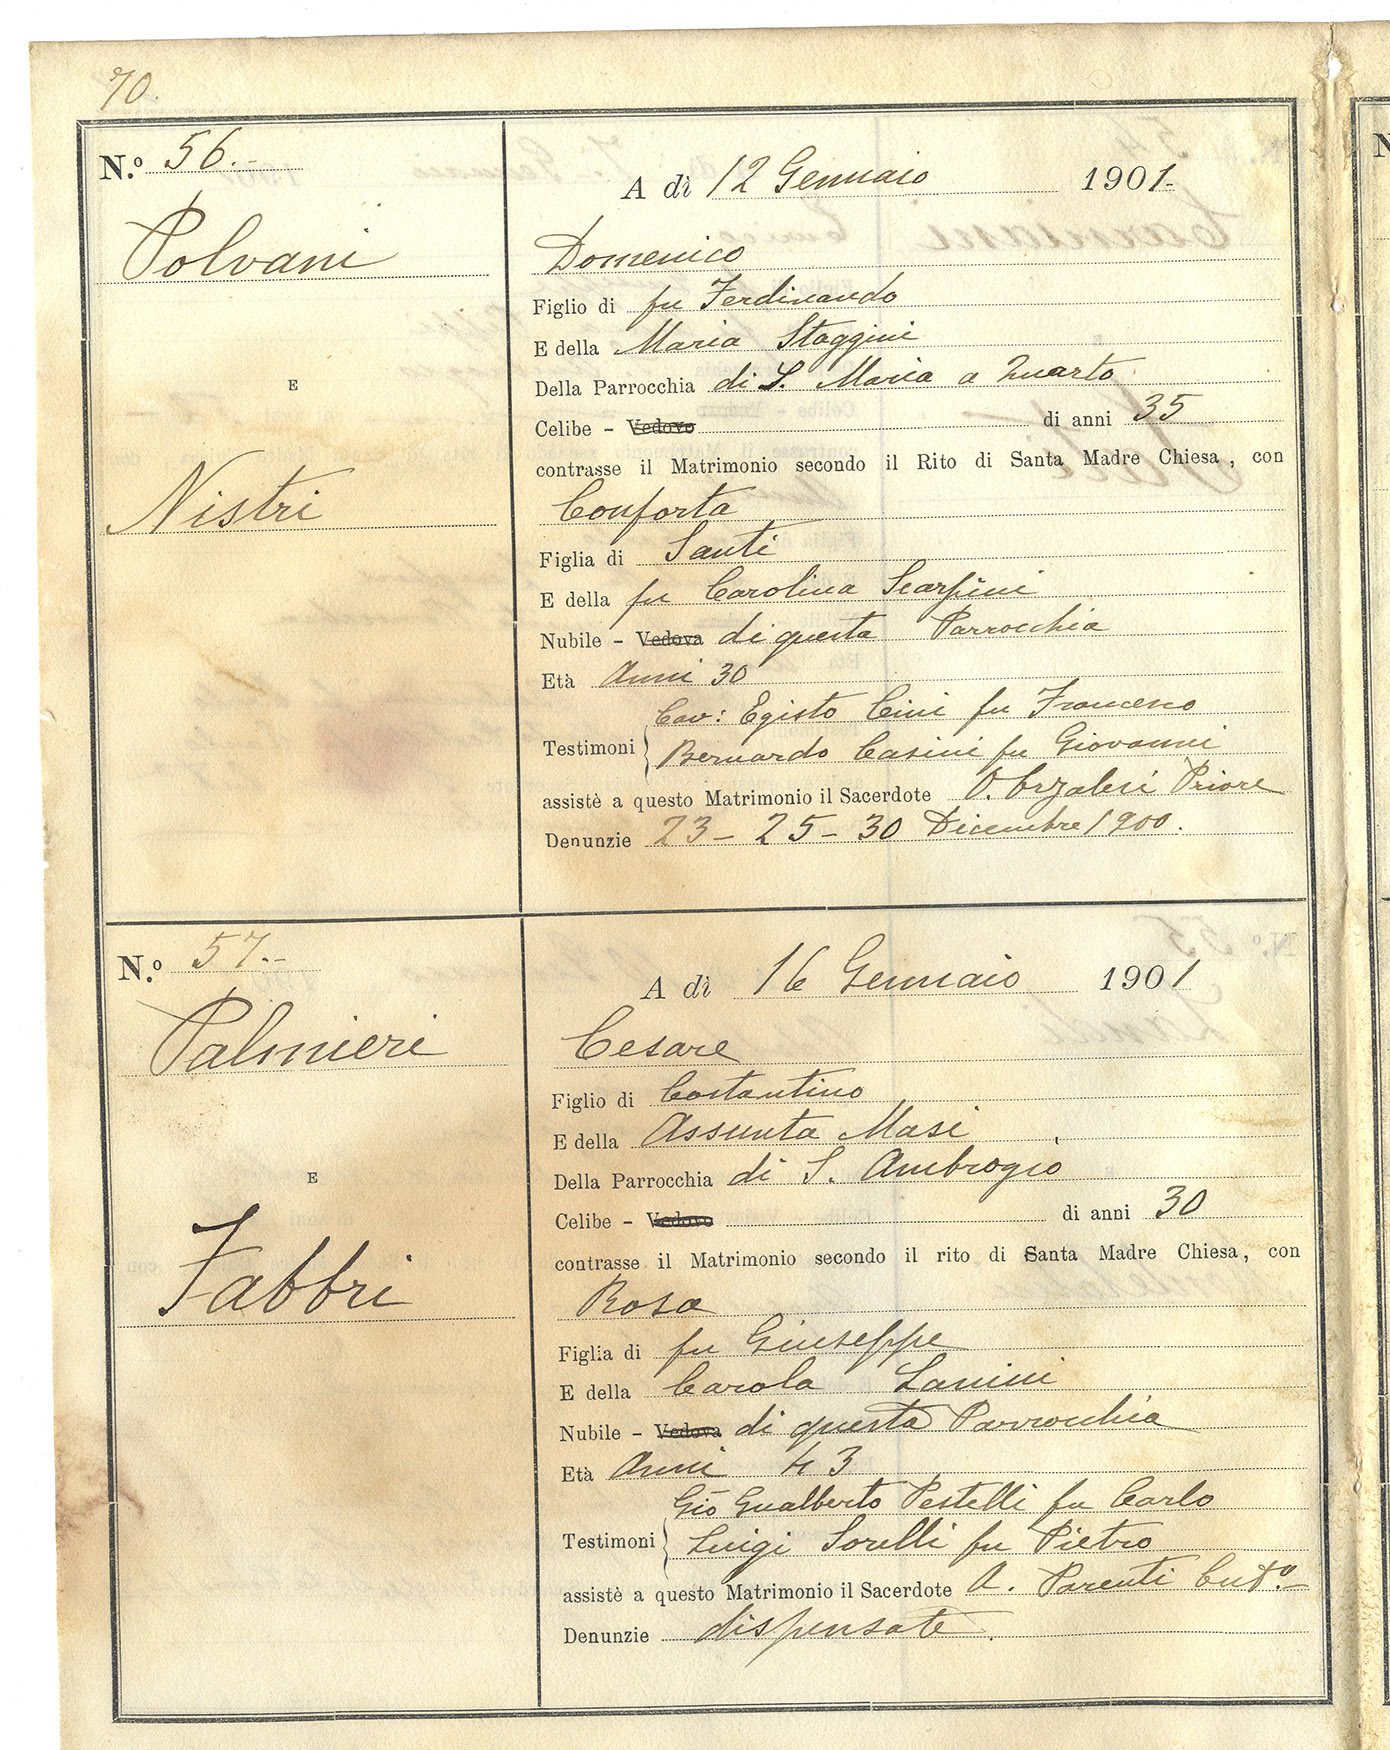 70.
N.º 56.-
A dì 12 Gennaio 1901.-
Polvani
Domenico
Figlio di fu Ferdinando
E della Maria Staggini
E
Della Parrocchia di S. Maria a Quarto
Celibe - Vedovo di anni 35
contrasse il Matrimonio secondo il Rito di Santa Madre Chiesa, con
Nistri
Conforta
Figlia di Santi
E della fu Carolina Scarpini
Nubile - Vedova di questa Parrocchia
Età Anni 30
Testimoni Cav: Egisto Cini fu Francesco
Bernardo Casini fu Giovanni
assistè a questo Matrimonio il Sacerdote Priore
Denunzie 23 - 25 - 30 Dicembre 1900.
N.º 57.-
A dì 16 Gennaio 1901
Palmieri
Cesare
Figlio di Costantino
E della Assunta Masi
E
Della Parrocchia di S. Ambrogio
Celibe - Vedovo di anni 30
contrasse il Matrimonio secondo il rito di Santa Madre Chiesa, con
Fabbri
Rosa
Figlia di fu Giuseppe
E della Carola Lanini
Nubile - Vedova di questa Parrocchia
Età Anni 43
Testimoni Gio Gualberto Pestelli fu Carlo
Luigi Sorelli fu Pietro
assistè a questo Matrimonio il Sacerdote A. Parenti
Denunzie dispensate.